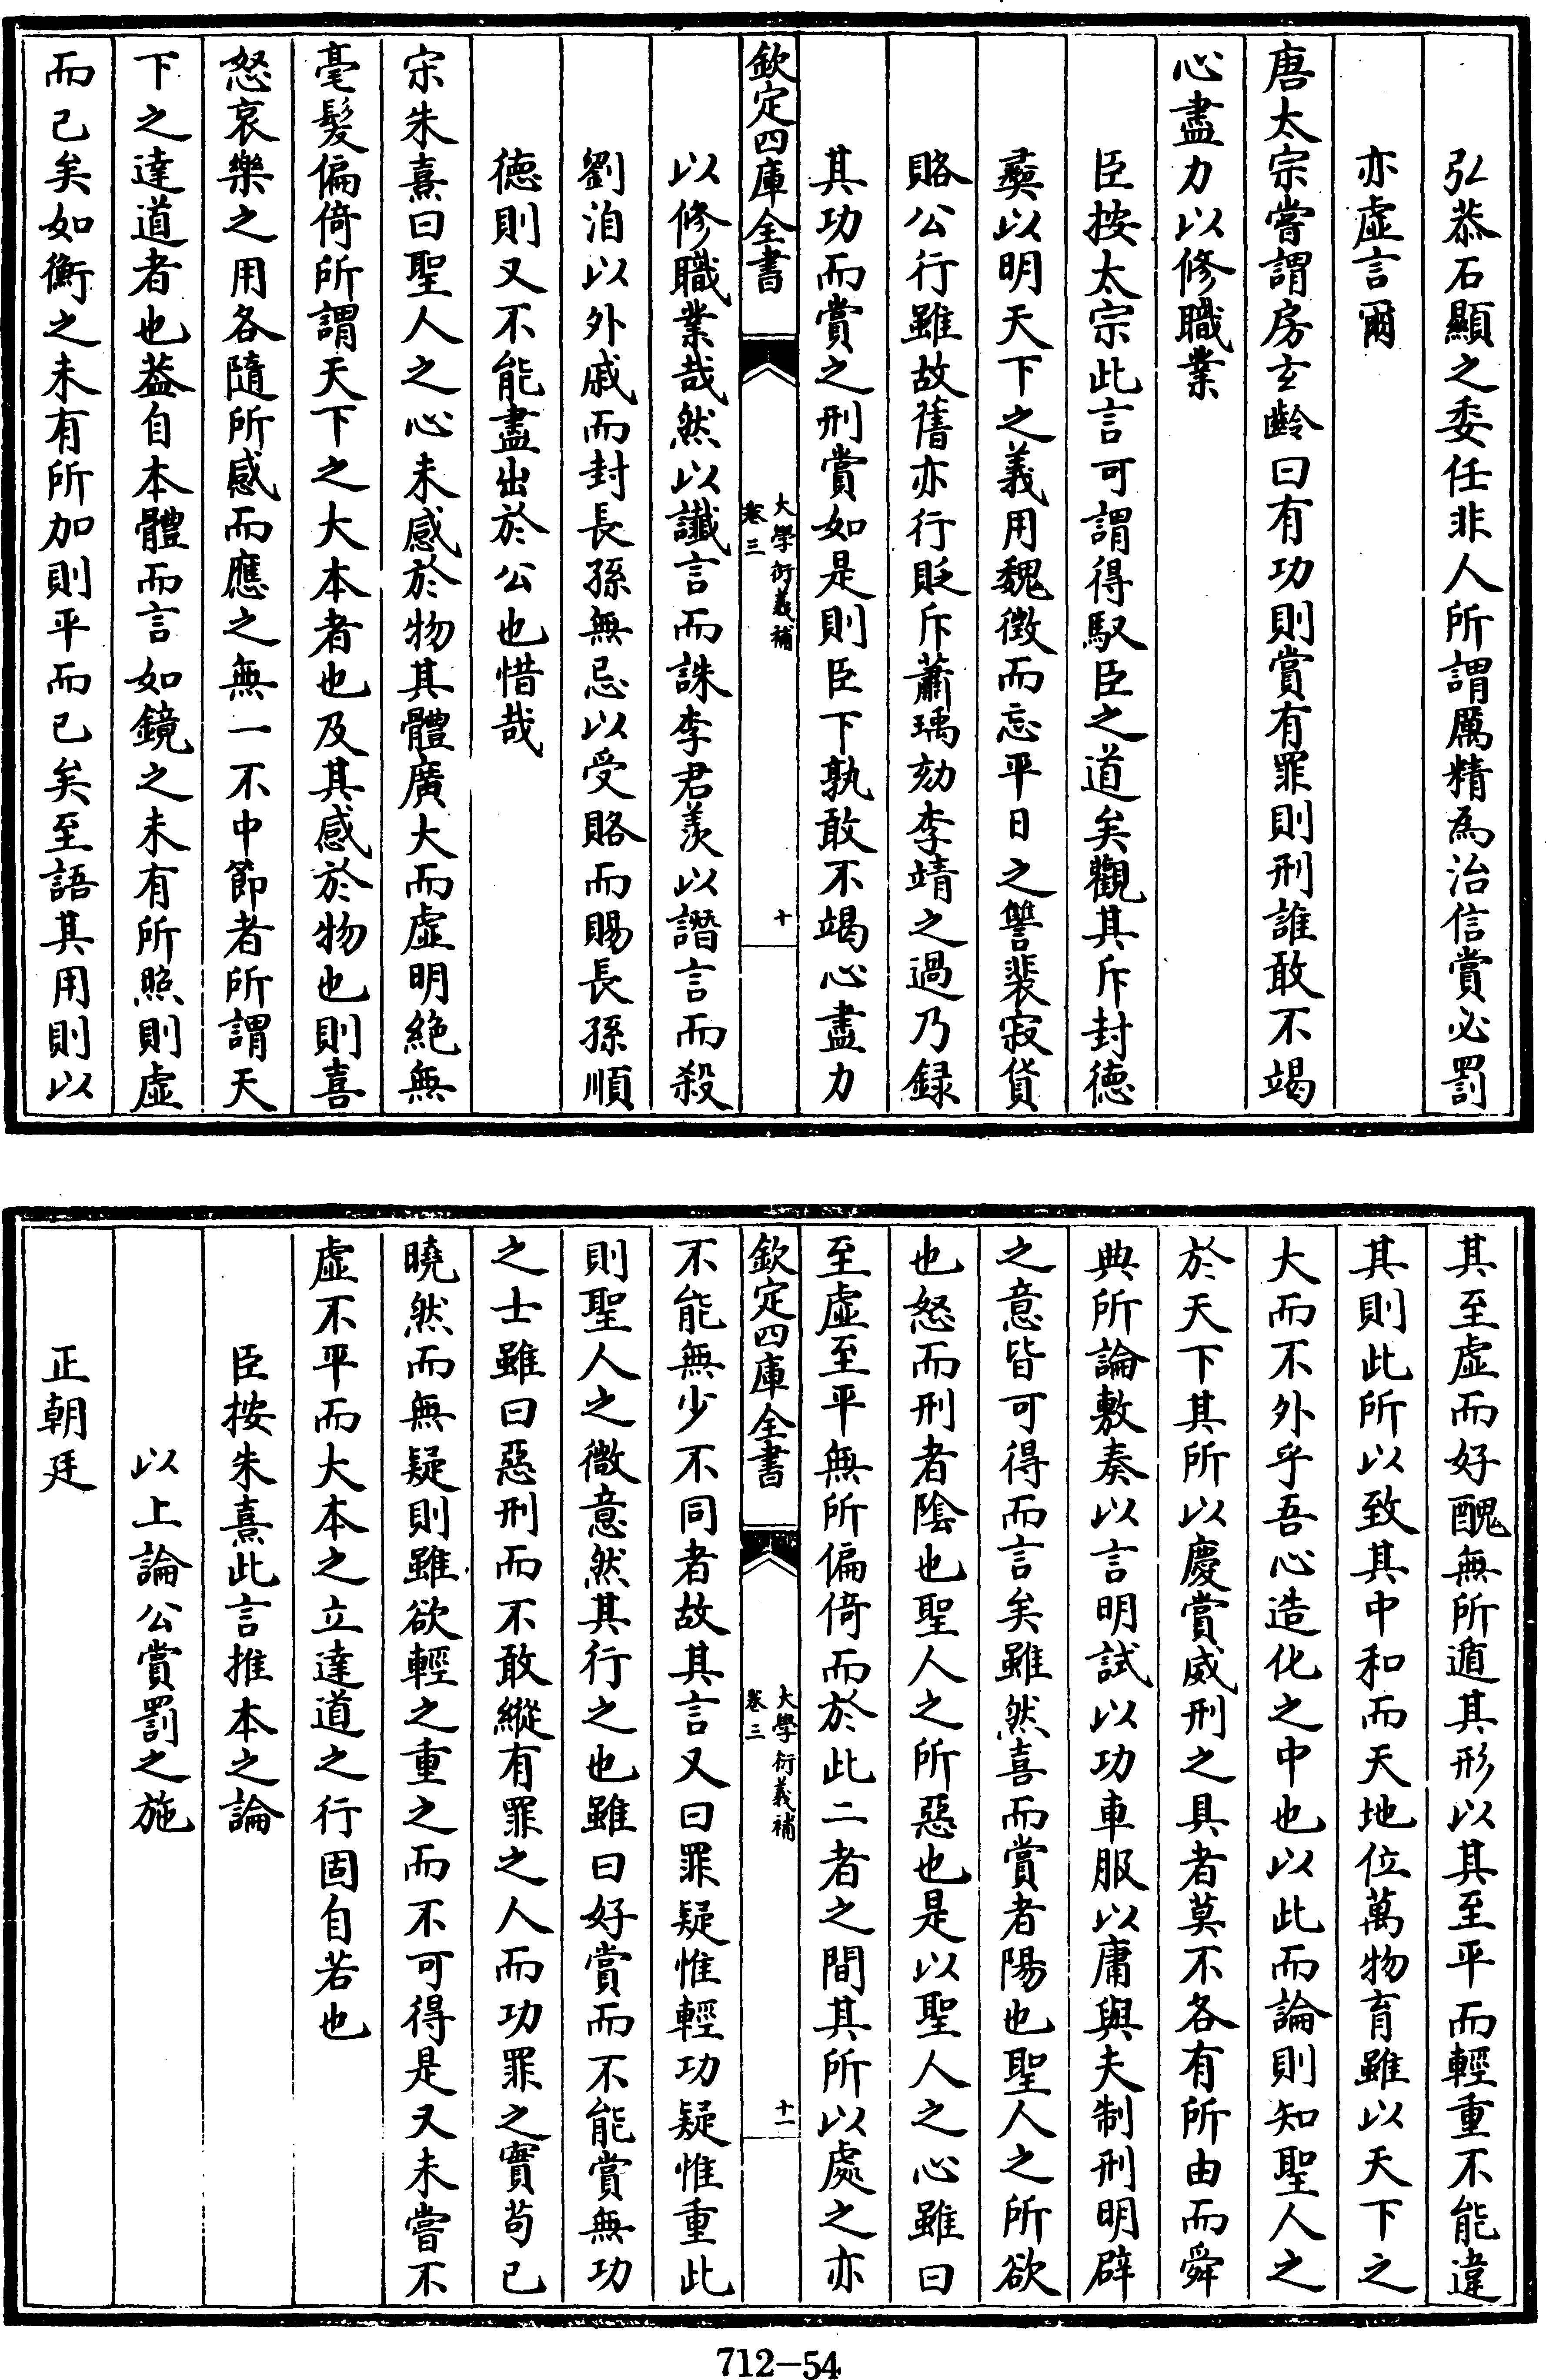 弘恭石顯之委任非人所謂厲精為治信賞必罰
亦虛言爾
唐太宗嘗謂房玄齡曰有功則賞有罪則刑誰敢不竭
心盡力以修職業
臣按太宗此言可謂得馭臣之道矣觀其斥封德
彞以明天下之義用魏徵而忘平日之讐裴寂貨
賂公行雖故舊亦行貶斥蕭瑀劾李靖之過乃録
其功而賞之刑賞如是則臣下孰敢不竭心盡力
欽定四庫全書
大學衍義補
卷三
十
以修職業哉然以讖言而誅李君羨以譖言而殺
劉洎以外戚而封長孫無忌以受賂而賜長孫順
德則又不能盡出於公也惜哉
宋朱熹曰聖人之心未感於物其體廣大而虛明絶無
毫髮偏倚所謂天下之大本者也及其感於物也則喜
怒哀樂之用各隨所感而應之無一不中節者所謂天
下之達道者也葢自本體而言如鏡之未有所照則虛
而已矣如衡之未有所加則平而已矣至語其用則以
其至虛而好醜無所遁其形以其至平而輕重不能違
其則此所以致其中和而天地位萬物育雖以天下之
大而不外乎吾心造化之中也以此而論則知聖人之
於天下其所以慶賞威刑之具者莫不各有所由而舜
典所論敷奏以言明試以功車服以庸與夫制刑明辟
之意皆可得而言矣雖然喜而賞者陽也聖人之所欲
也怒而刑者陰也聖人之所惡也是以聖人之心雖曰
至虛至平無所偏倚而於此二者之間其所以處之亦
欽定四庫全書
大學衍義補
卷三
十一
不能無少不同者故其言又曰罪疑惟輕功疑惟重此
則聖人之微意然其行之也雖曰好賞而不能賞無功
之士雖曰惡刑而不敢縱有罪之人而功罪之實苟已
曉然而無疑則雖欲輕之重之而不可得是又未嘗不
虛不平而大本之立達道之行固自若也
臣按朱熹此言推本之論
以上論公賞罰之施
正朝廷
712-54